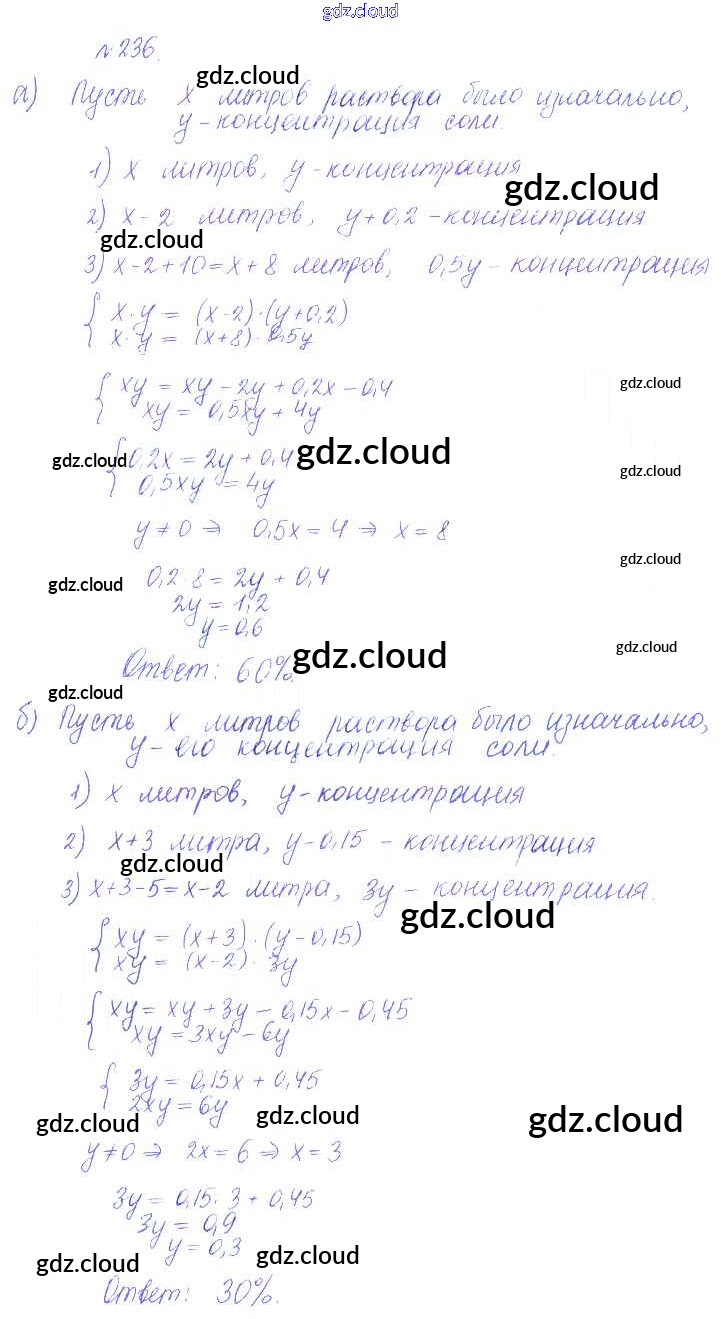 gdz.cloud
№236.
gdz.cloud
а) Пусть x литров раствора было изначально,
y - концентрация соли.
1) x литров, y - концентрация
gdz.cloud
2) x - 2 литров, y + 0,2 - концентрация
gdz.cloud
3) x - 2 + 10 = x + 8 литров, 0,5y - концентрация
{ x · y = (x - 2) · (y + 0,2)
x · y = (x + 8) · 0,5y
{ xy = xy - 2y + 0,2x - 0,4 gdz.cloud
xy = 0,5xy + 4y
gdz.cloud { 0,2x = 2y + 0,4 gdz.cloud
0,5xy = 4y gdz.cloud
y ≠ 0 ⇒ 0,5x = 4 ⇒ x = 8
gdz.cloud
gdz.cloud 0,2 · 8 = 2y + 0,4
2y = 1,2
y = 0,6
gdz.cloud
Ответ: 60%. gdz.cloud
gdz.cloud
б) Пусть x литров раствора было изначально,
y - его концентрация соли.
1) x литров, y - концентрация
2) x + 3 литра, y - 0,15 - концентрация
gdz.cloud
3) x + 3 - 5 = x - 2 литра, 3y - концентрация.
gdz.cloud
{ xy = (x + 3) · (y - 0,15)
xy = (x - 2) · 3y
{ xy = xy + 3y - 0,15x - 0,45
xy = 3xy - 6y
{ 3y = 0,15x + 0,45
2xy = 6y
gdz.cloud gdz.cloud gdz.cloud
y ≠ 0 ⇒ 2x = 6 ⇒ x = 3
3y = 0,15 · 3 + 0,45
3y = 0,9
y = 0,3
gdz.cloud gdz.cloud
Ответ: 30%.